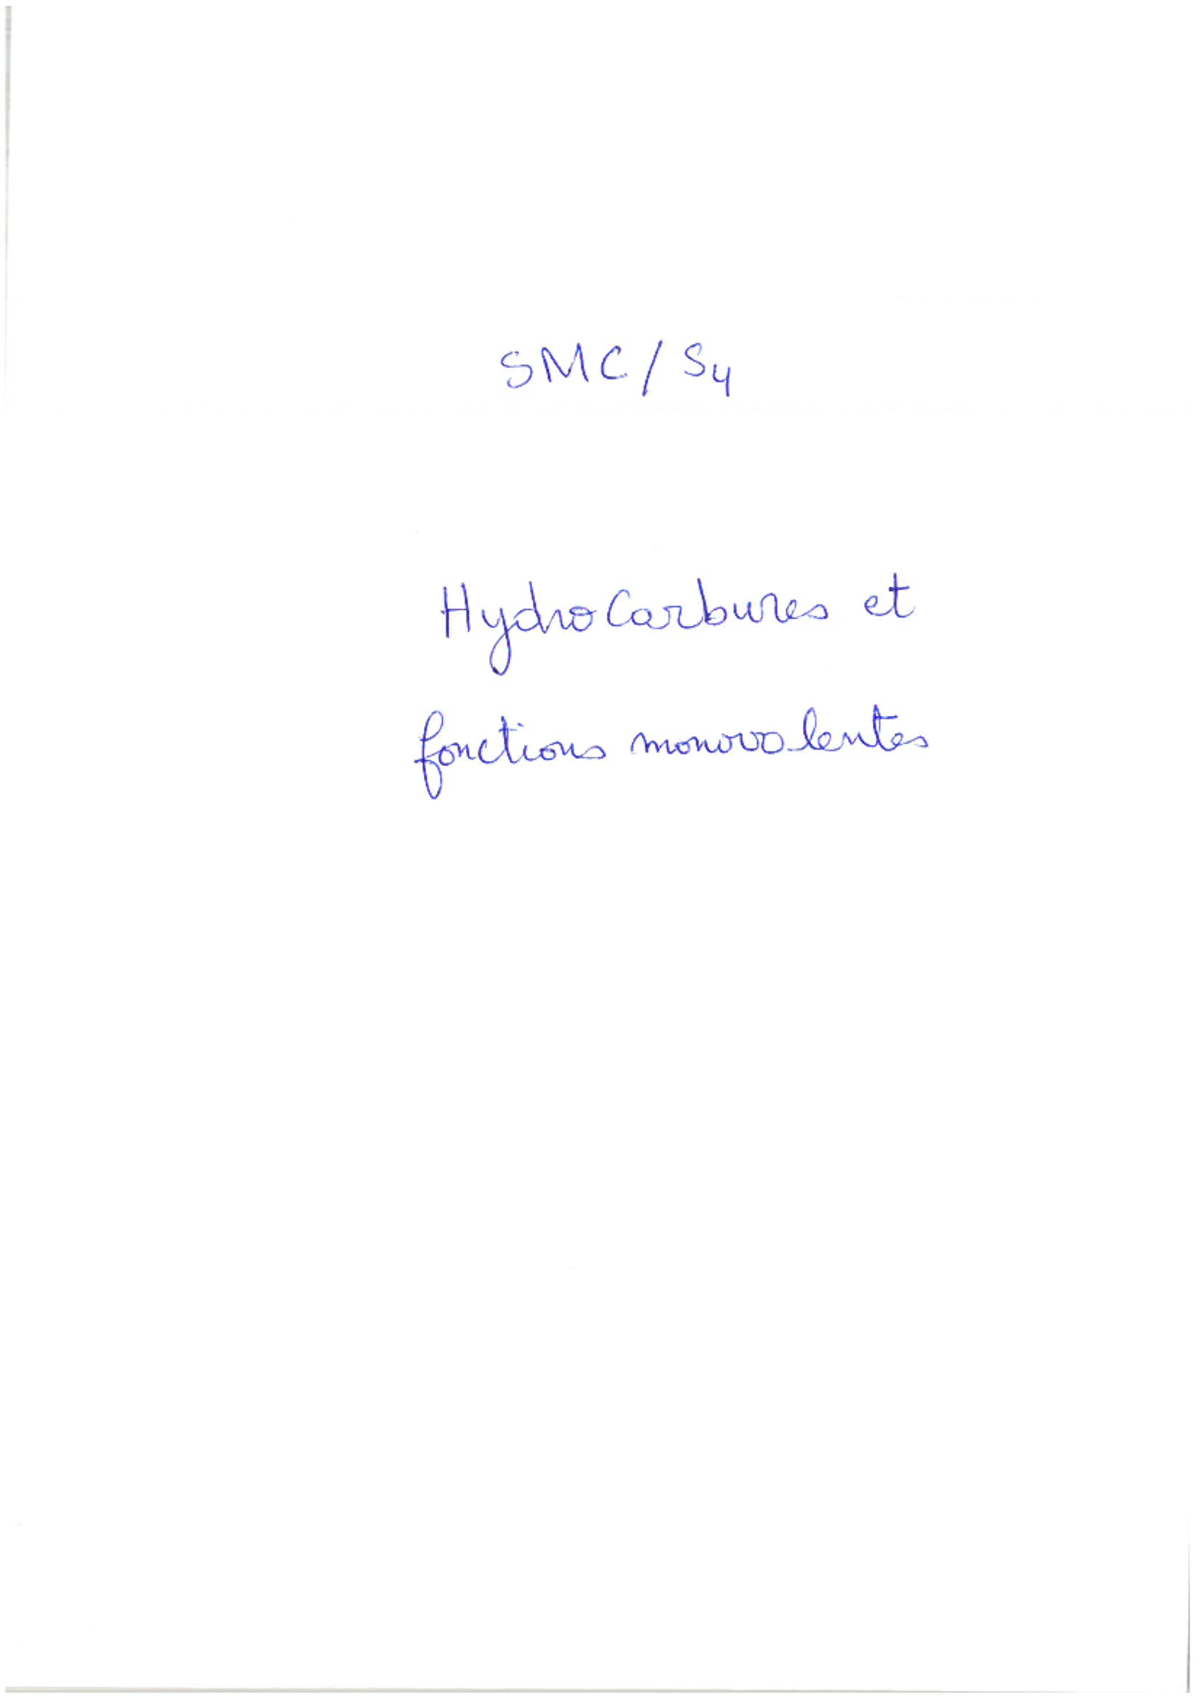 SMC/S4
Hydrocarbures et
fonctions monovalentes